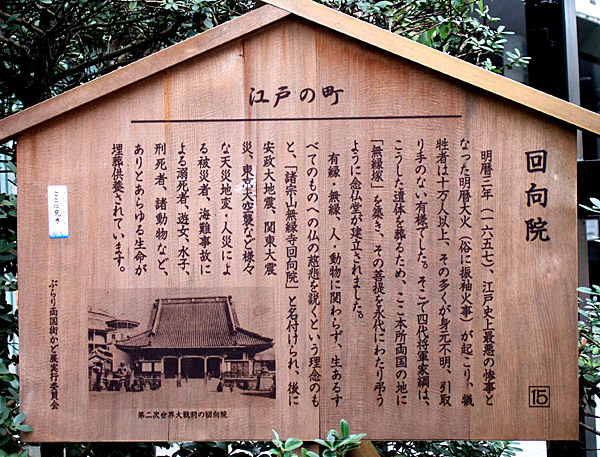 江戸の町
回向院
明暦三年（一六五七）、江戸史上最悪の惨事と
なった明暦大火（俗に振袖火事）が起こり、犠
牲者は十万人以上、その多くが身元不明、引取
り手のない有様でした。そこで四代将軍家綱は、
こうした遺体を葬るため、ここ本所両国の地に
「無縁塚」を築き、その菩提を永代にわたり弔う
ように念仏堂が建立されました。
有縁・無縁、人・動物に関わらず、生あるす
べてのものへの仏の慈悲を説くという理念のも
と、「諸宗山無縁寺回向院」と名付けられ、後に
安政大地震、関東大震
災、東京大空襲など様々
な天災地変・人災によ
る被災者、海難事故に
よる溺死者、遊女、水子、
刑死者、諸動物など、
ありとあらゆる生命が
埋葬供養されています。
ぶらり両国街かど展実行委員会
第二次世界大戦前の回向院
15